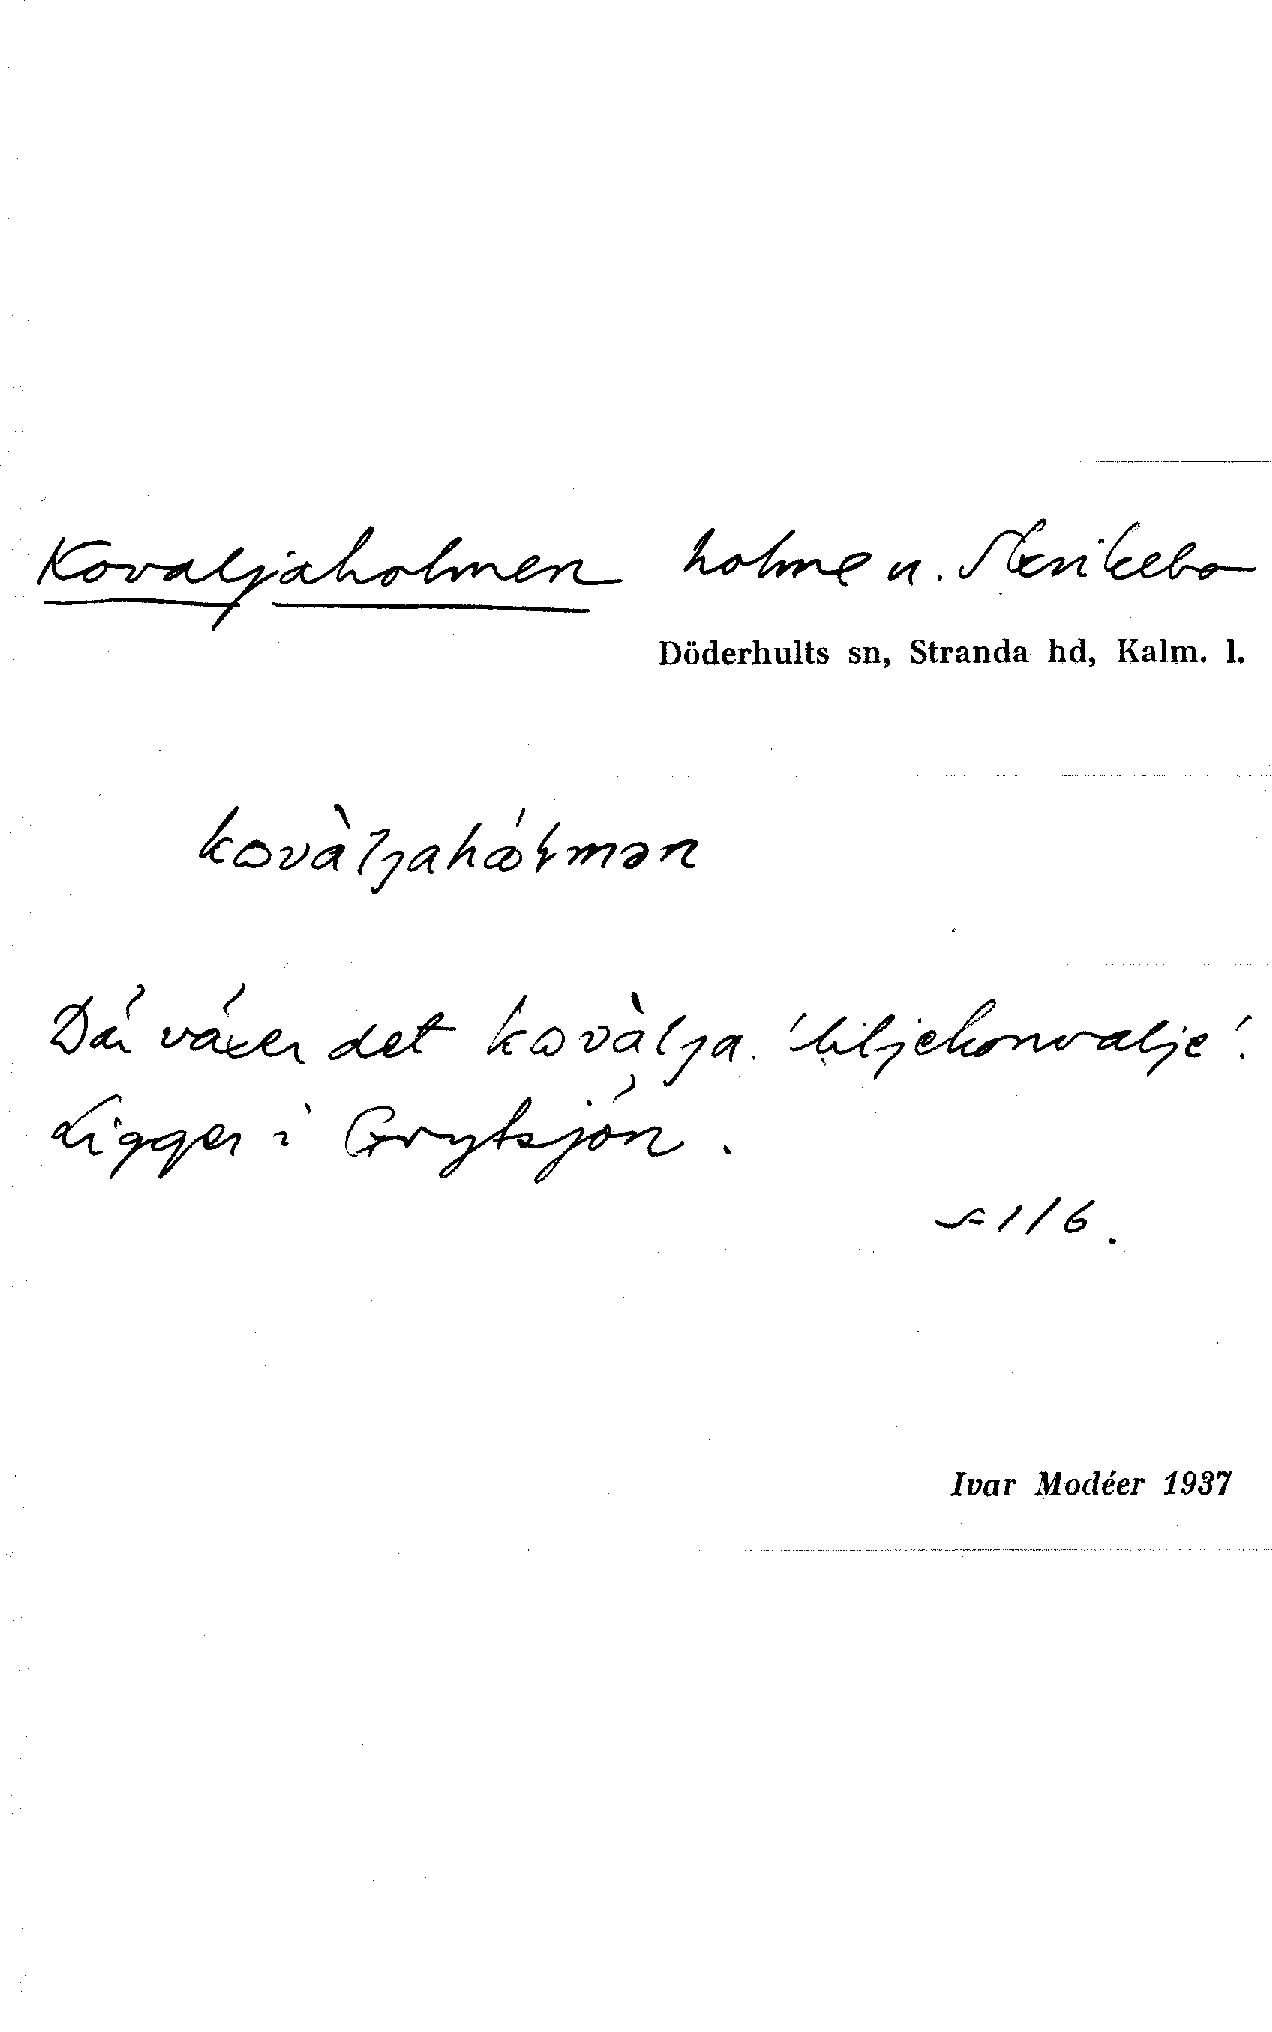 Kovaljaholmen holme u. Skrikebo
Döderhults sn, Stranda hd, Kalm. l.
kovàljahólmən
Där växer det kovàlja. 'liljekonvalje'.
Ligger i Grytsjön.
1/6.
Ivar Modéer 1937